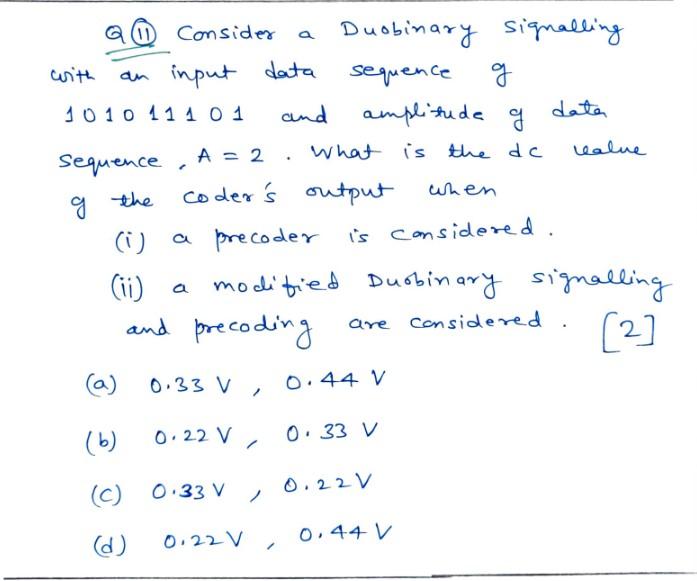 Q 11 Consider a Duobinary signalling
with an input data sequence of
1 0 1 0 1 1 1 0 1 and amplitude of data
sequence, A = 2. What is the dc value
of the coder's output when
(i) a precoder is considered.
(ii) a modified Duobinary signalling
and precoding are considered. [2]
(a) 0.33 V, 0.44 V
(b) 0.22 V, 0.33 V
(c) 0.33 V, 0.22 V
(d) 0.22 V, 0.44 V